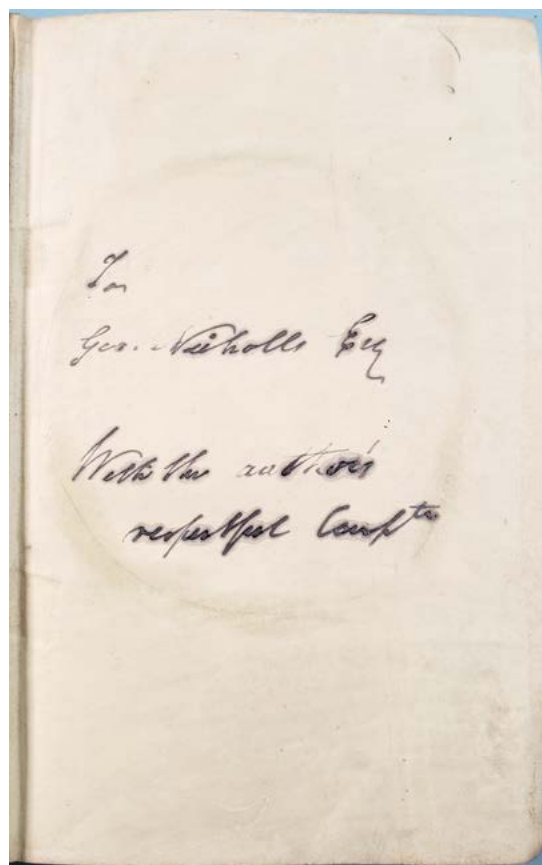 To
Geo. Nicholls Esq
With the author's
respectful Compts